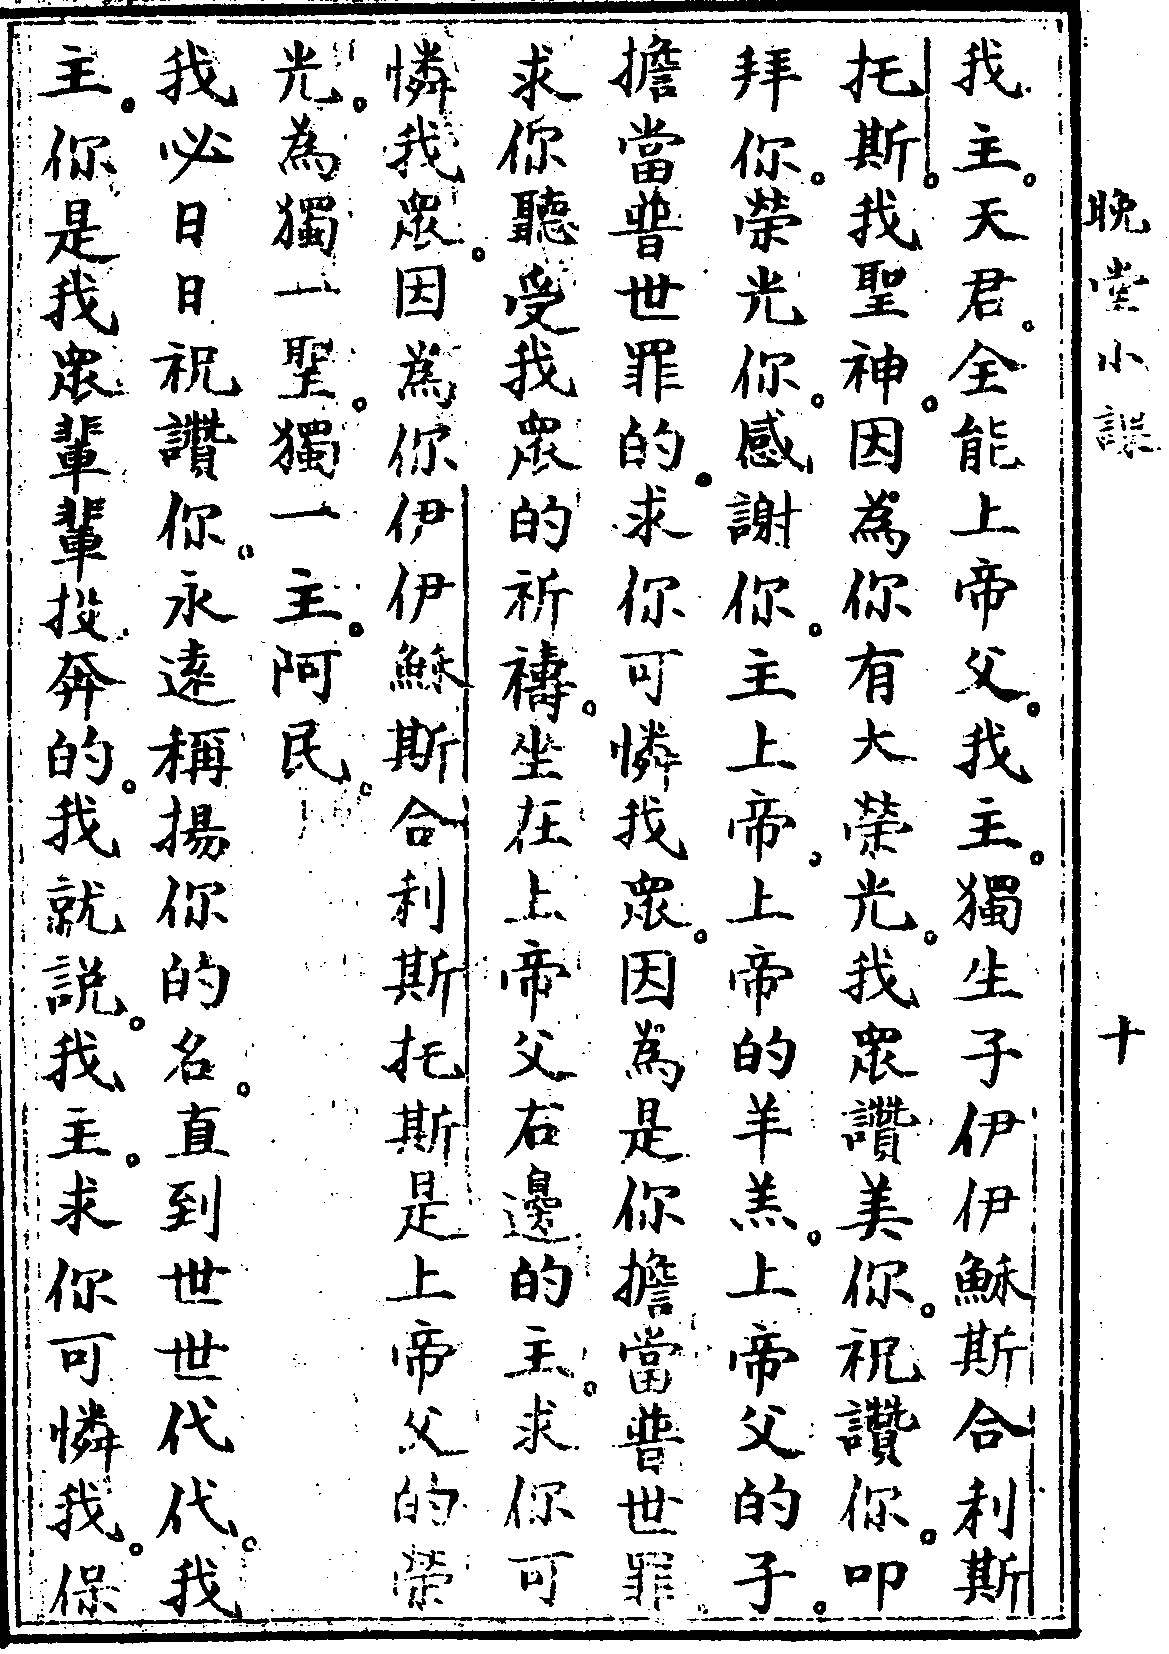 晚堂小課
十
我主。天君。全能上帝父。我主。獨生子伊伊穌斯合利斯
托斯。我聖神。因為你有大榮光。我眾讚美你。祝讚你。叩
拜你。榮光你。感謝你。主上帝。上帝的羊羔。上帝父的子。
擔當普世罪的。求你可憐我眾。因為是你擔當普世罪。
求你聽受我眾的祈禱。坐在上帝父右邊的主。求你可
憐我眾。因為你伊伊穌斯合利斯托斯是上帝父的榮
光。為獨一聖。獨一主。阿民。
我必日日祝讚你。永遠稱揚你的名。直到世世代代。我
主。你是我眾輩輩投奔的。我就説。我主。求你可憐我。保